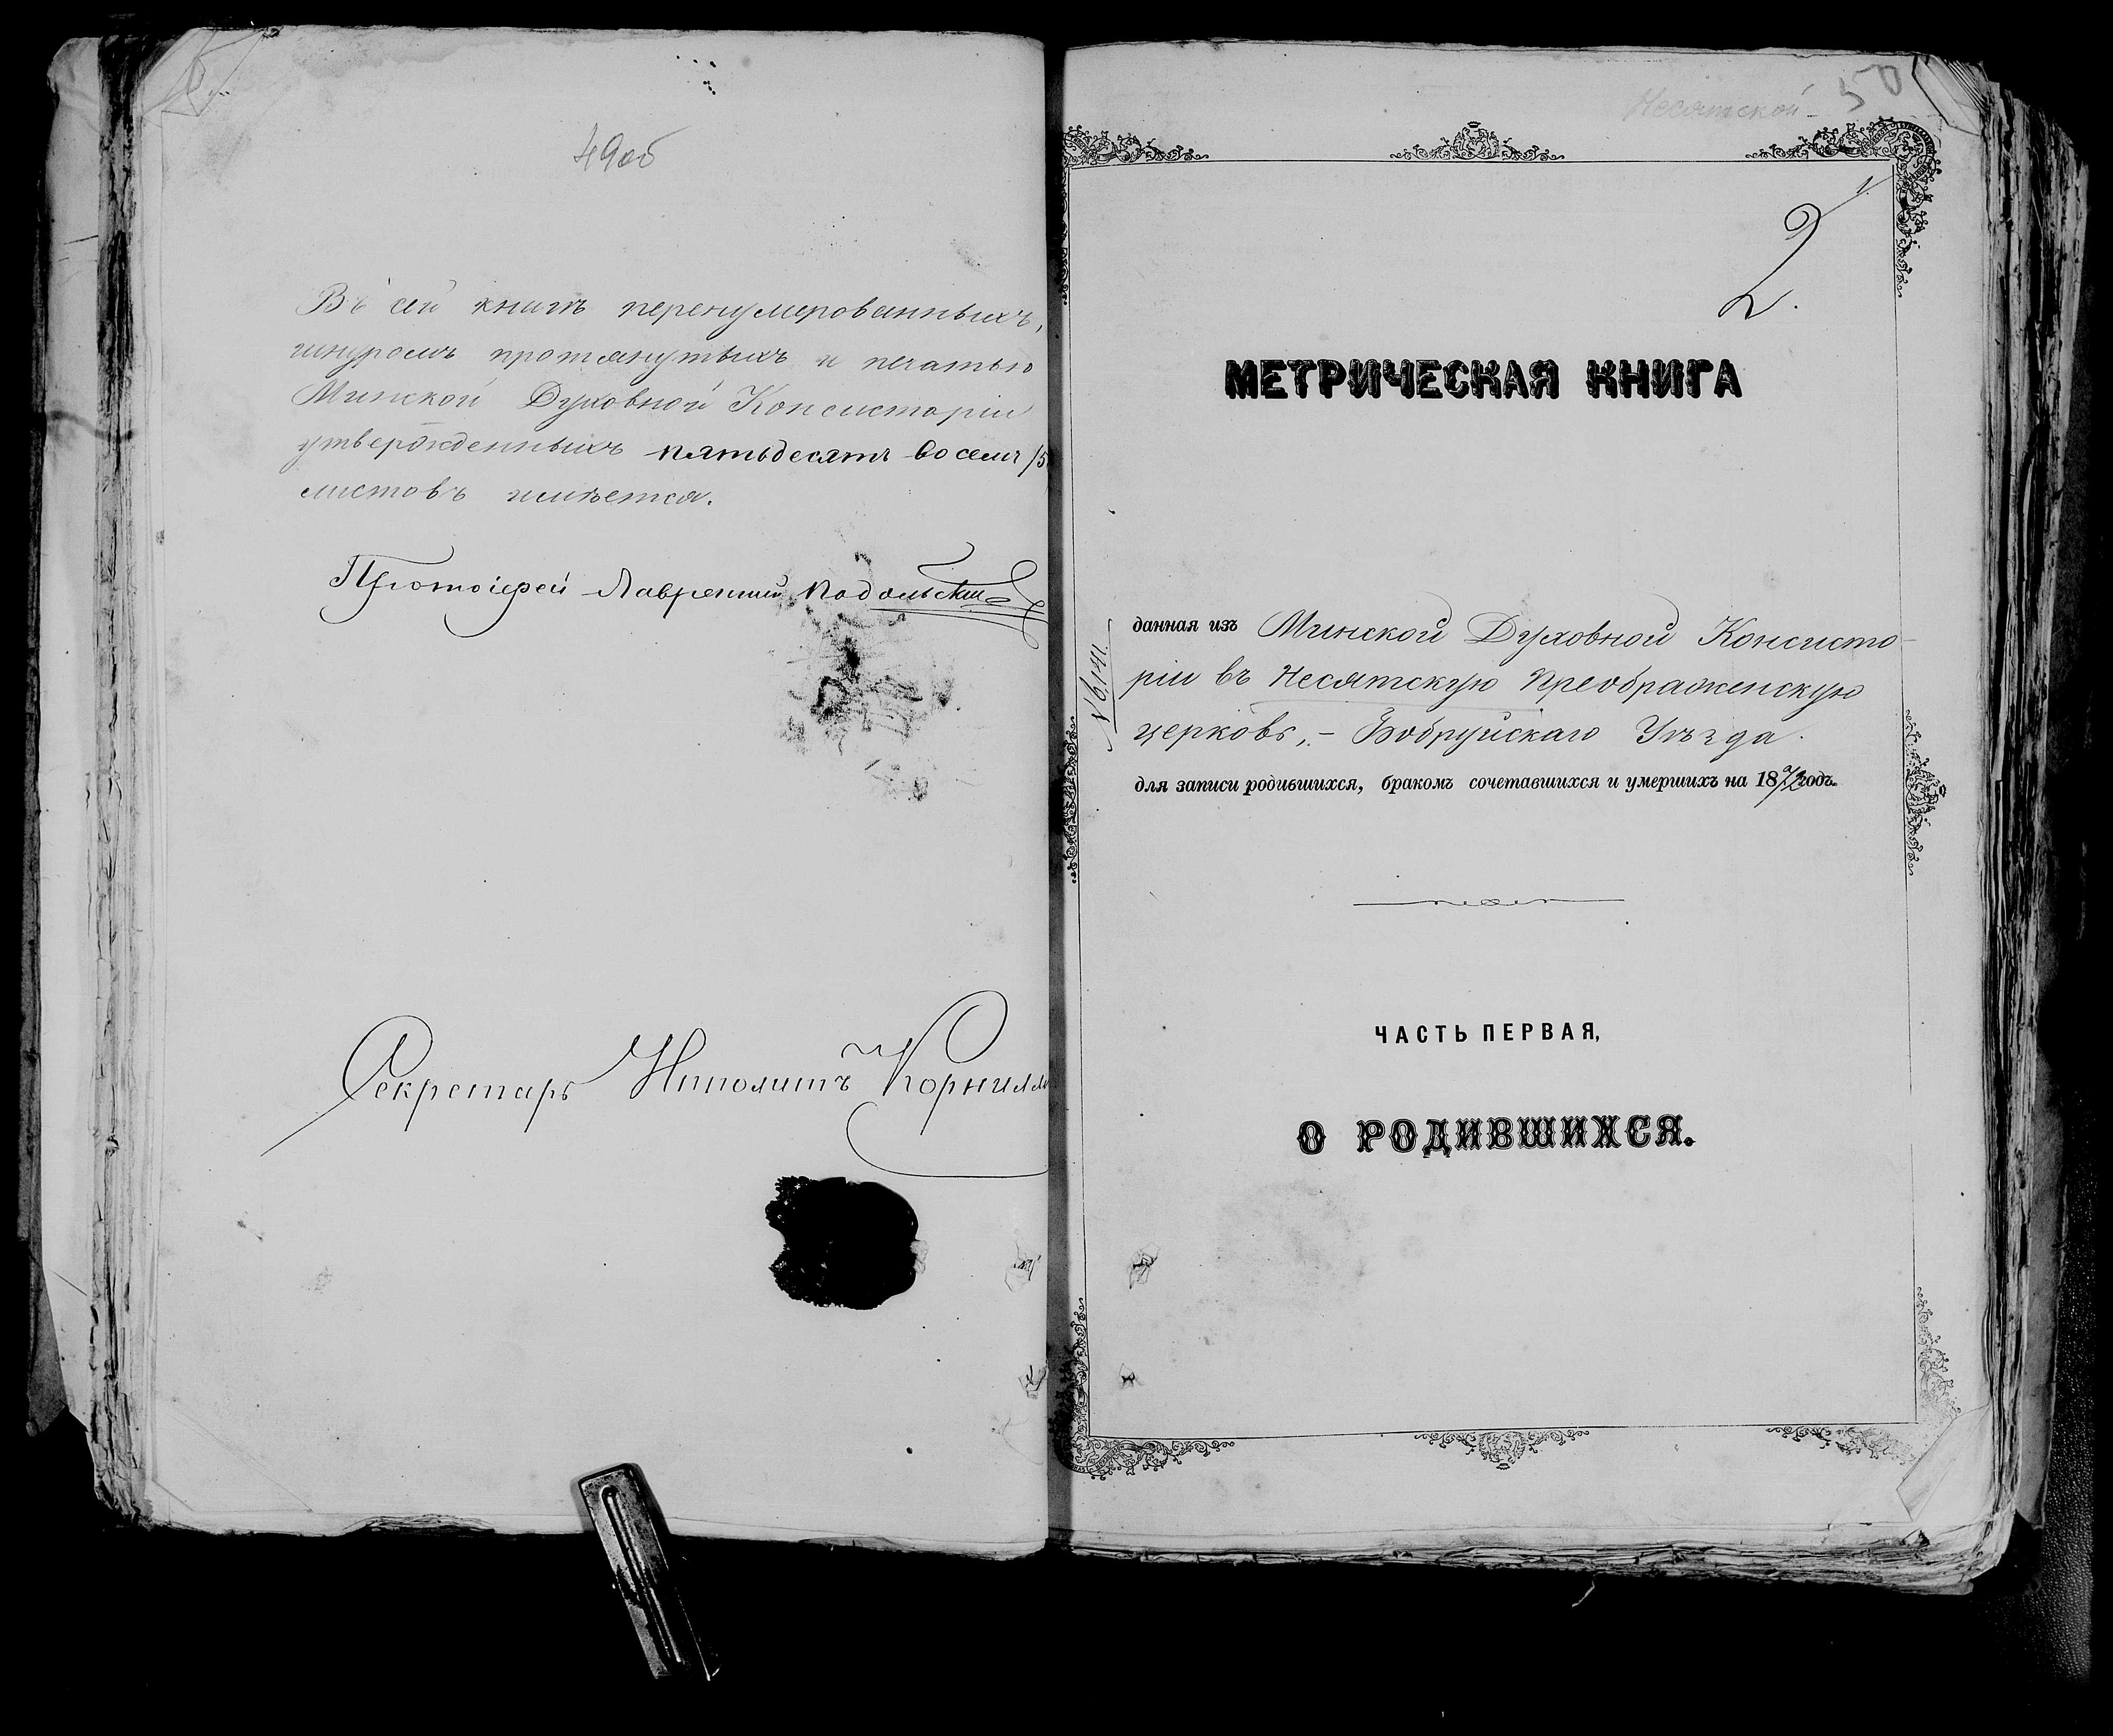 49об
Въ сей книгѣ перенумерованныхъ,
шнуромъ протянутыхъ и печатью
Минской Духовной Консисторіи
утвержденныхъ пятьдесятъ восемь /5
листовъ имѣется.
Протоіерей Лаврентий Подольский
Секретарь Ипполитъ Корнилл
Несятской
50
1
2.
МЕТРИЧЕСКАЯ КНИГА
данная изъ Минской Духовной Консисто-
ріи въ Несятскую Преображенскую
церковь, - Бобруйскаго Уѣзда.
для записи родившихся, бракомъ сочетавшихся и умершихъ на 18 годъ.
ЧАСТЬ ПЕРВАЯ,
О РОДИВШИХСЯ.